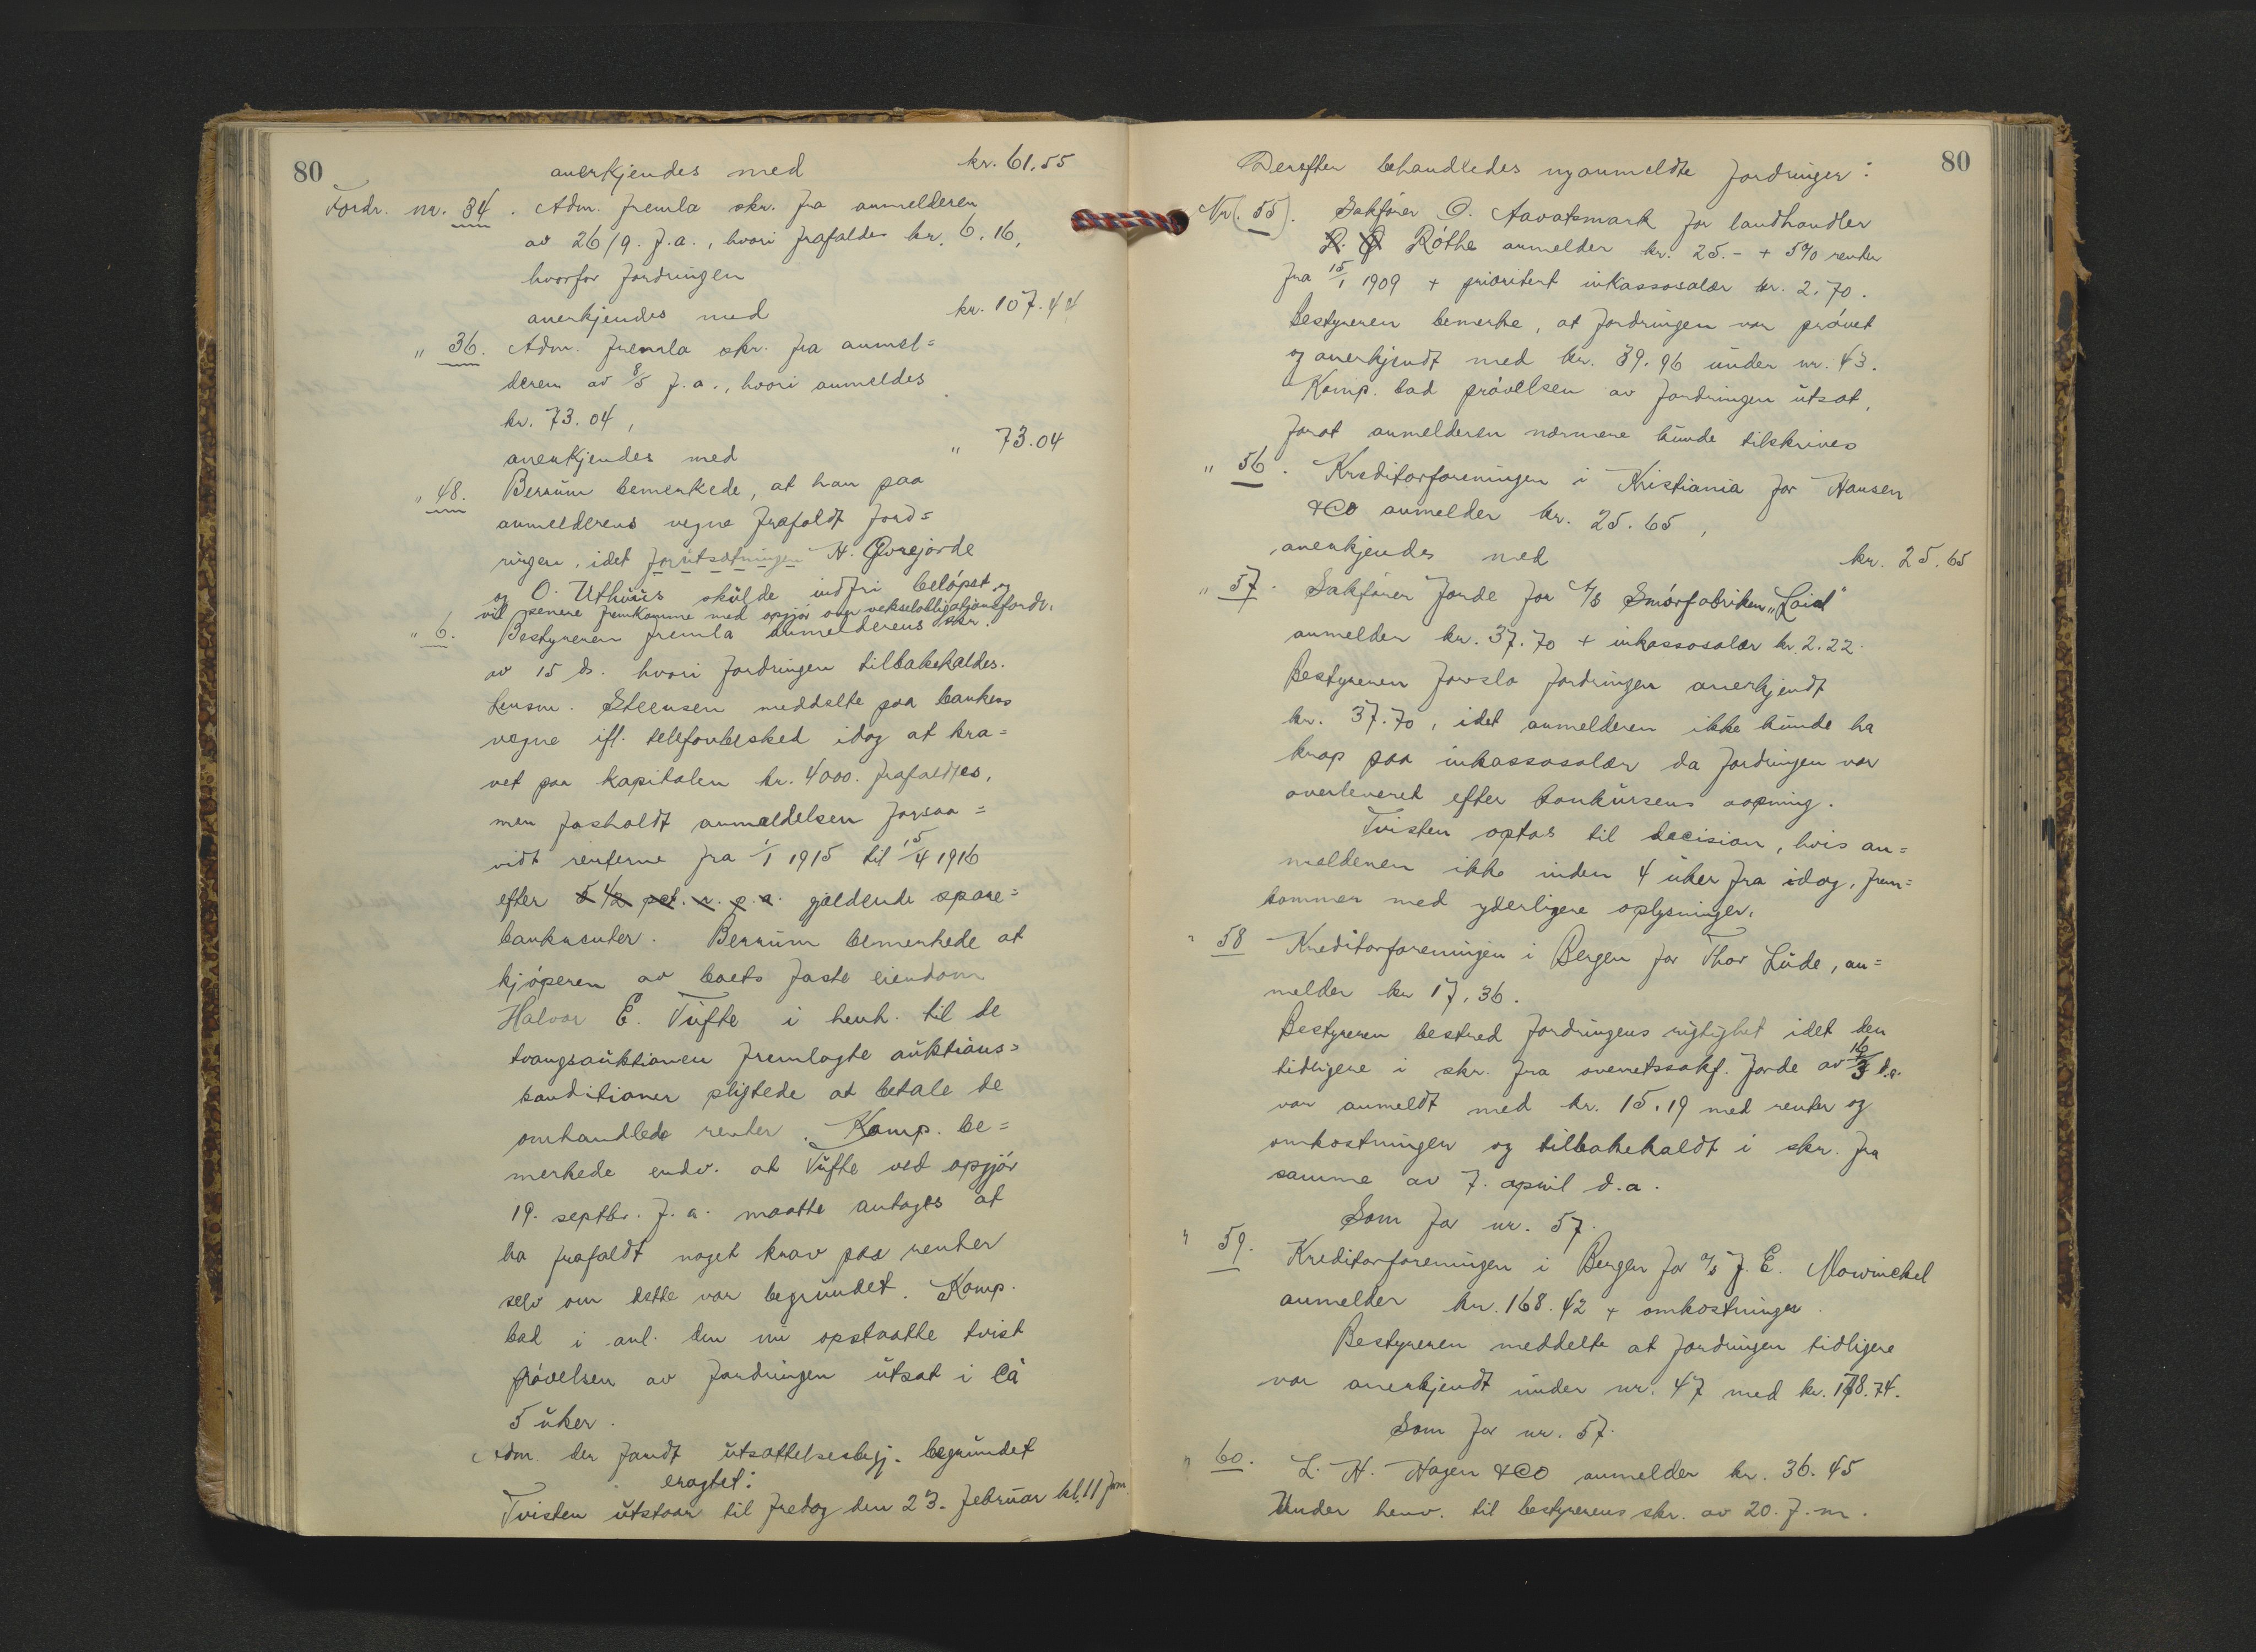 80
anerkjendes med kr. 61.55
Fordr. nr. 34. Adm. fremla skr. fra anmelderen
av 26/9. f.a., hvori frafaldes kr. 6.16,
hvorfor fordringen
anerkjendes med kr. 107.44
" 36. Adm. fremla skr. fra anmel=
deren av 8/5 f.a., hvori anmeldes
kr. 73.04,
anerkjendes med " 73.04
" 48. Berrüm bemerkede, at han paa
anmelderens vegne frafaldt ford=
ringen, idet forutsætningen H. Qvrejorde
og O. Uthuus skulde indfri beløpet og
vil senere fremkomme med opgjør over vekselobligationsfordr.
" 6. Bestyreren fremla anmelderens skr.
av 15 ds. hvori fordringen tilbakekaldes.
Lensm. Steensen meddelte paa bankens
vegne ifl. telefonbesked idag at kra=
vet paa kapitalen kr. 4000. frafaldtes,
men fastholdt anmeldelsen forsaa=
vidt renterne fra 1/1 1915 til 15/4 1916
efter 5 1/2 pct. r. p. a. gjældende spare=
bankrenter. Berrüm bemerkede at
kjøperen av boets faste eiendom
Halvor E. Tufte i henh. til de
tvangsauktionen fremlagte auktions=
konditioner pligtede at betale de
omhandlede renter. Komp. be=
merkede endv. at Tufte ved opgjør
19. septbr. f.a. maatte antages at
ha frafaldt noget krav paa renter
selv om dette var begrundet. Komp.
bad i anl. den nu opstaatte tvist
prøvelsen av fordringen utsat i ca
5 uker.
Adm. der fandt utsættelsesbegj. begrundet
eragtet:
Tvisten utstaar til fredag den 23. februar kl. 11 fm.
80
Derefter behandledes nyanmeldte fordringer:
Nr. (55). Sakfører O. Aavatsmark for landhandler
Røthe anmelder kr. 25.- + 5% renter
fra 15/1 1909 + prioritert inkassosalær kr. 2.70.
Bestyreren bemerke, at fordringen var prøvet
og anerkjendt med kr. 39.96 under nr. 43.
Komp. bad prøvelsen av fordringen utsat,
forat anmelderen nærmere kunde tilskrives
" 56. Kreditorforeningen i Kristiania for Hansen
& Co anmelder kr. 25.65,
anerkjendes med kr. 25.65
" 57. Sakfører Jorde for A/S Smørfabriken "Loid"
anmelder kr. 37.70 + inkassosalær kr. 2.22.
Bestyreren forslo fordringen anerkjendt
kr. 37.70, idet anmelderen ikke kunde ha
krav paa inkassosalær da fordringen var
overleveret efter konkursens aapning.
Tvisten optas til decision, hvis an=
melderen ikke inden 4 uker fra idag, frem=
kommer med yderligere oplysninger.
" 58 Kreditorforeningen i Bergen for Thor Lude, an=
melder kr 17.36.
Bestyreren bestred fordringens rigtighet idet den
tidligere i skr. fra overretssakf. Jorde av 16/3 d.a.
var anmeldt med kr. 15.19 med renter og
omkostninger og tilbakekaldt i skr. fra
samme av 7. april d.a.
Som for nr. 57.
" 59. Kreditorforeningen i Bergen for A/S J. E. Mowinckel
anmelder kr. 168.42 + omkostninger.
Bestyreren meddelte at fordringen tidligere
var anerkjendt under nr. 47 med kr. 178.74.
Som for nr. 57.
" 60. L. H. Hagen & Co anmelder kr. 36.45
Under henv. til bestyrerens skr. av 20. f.m.